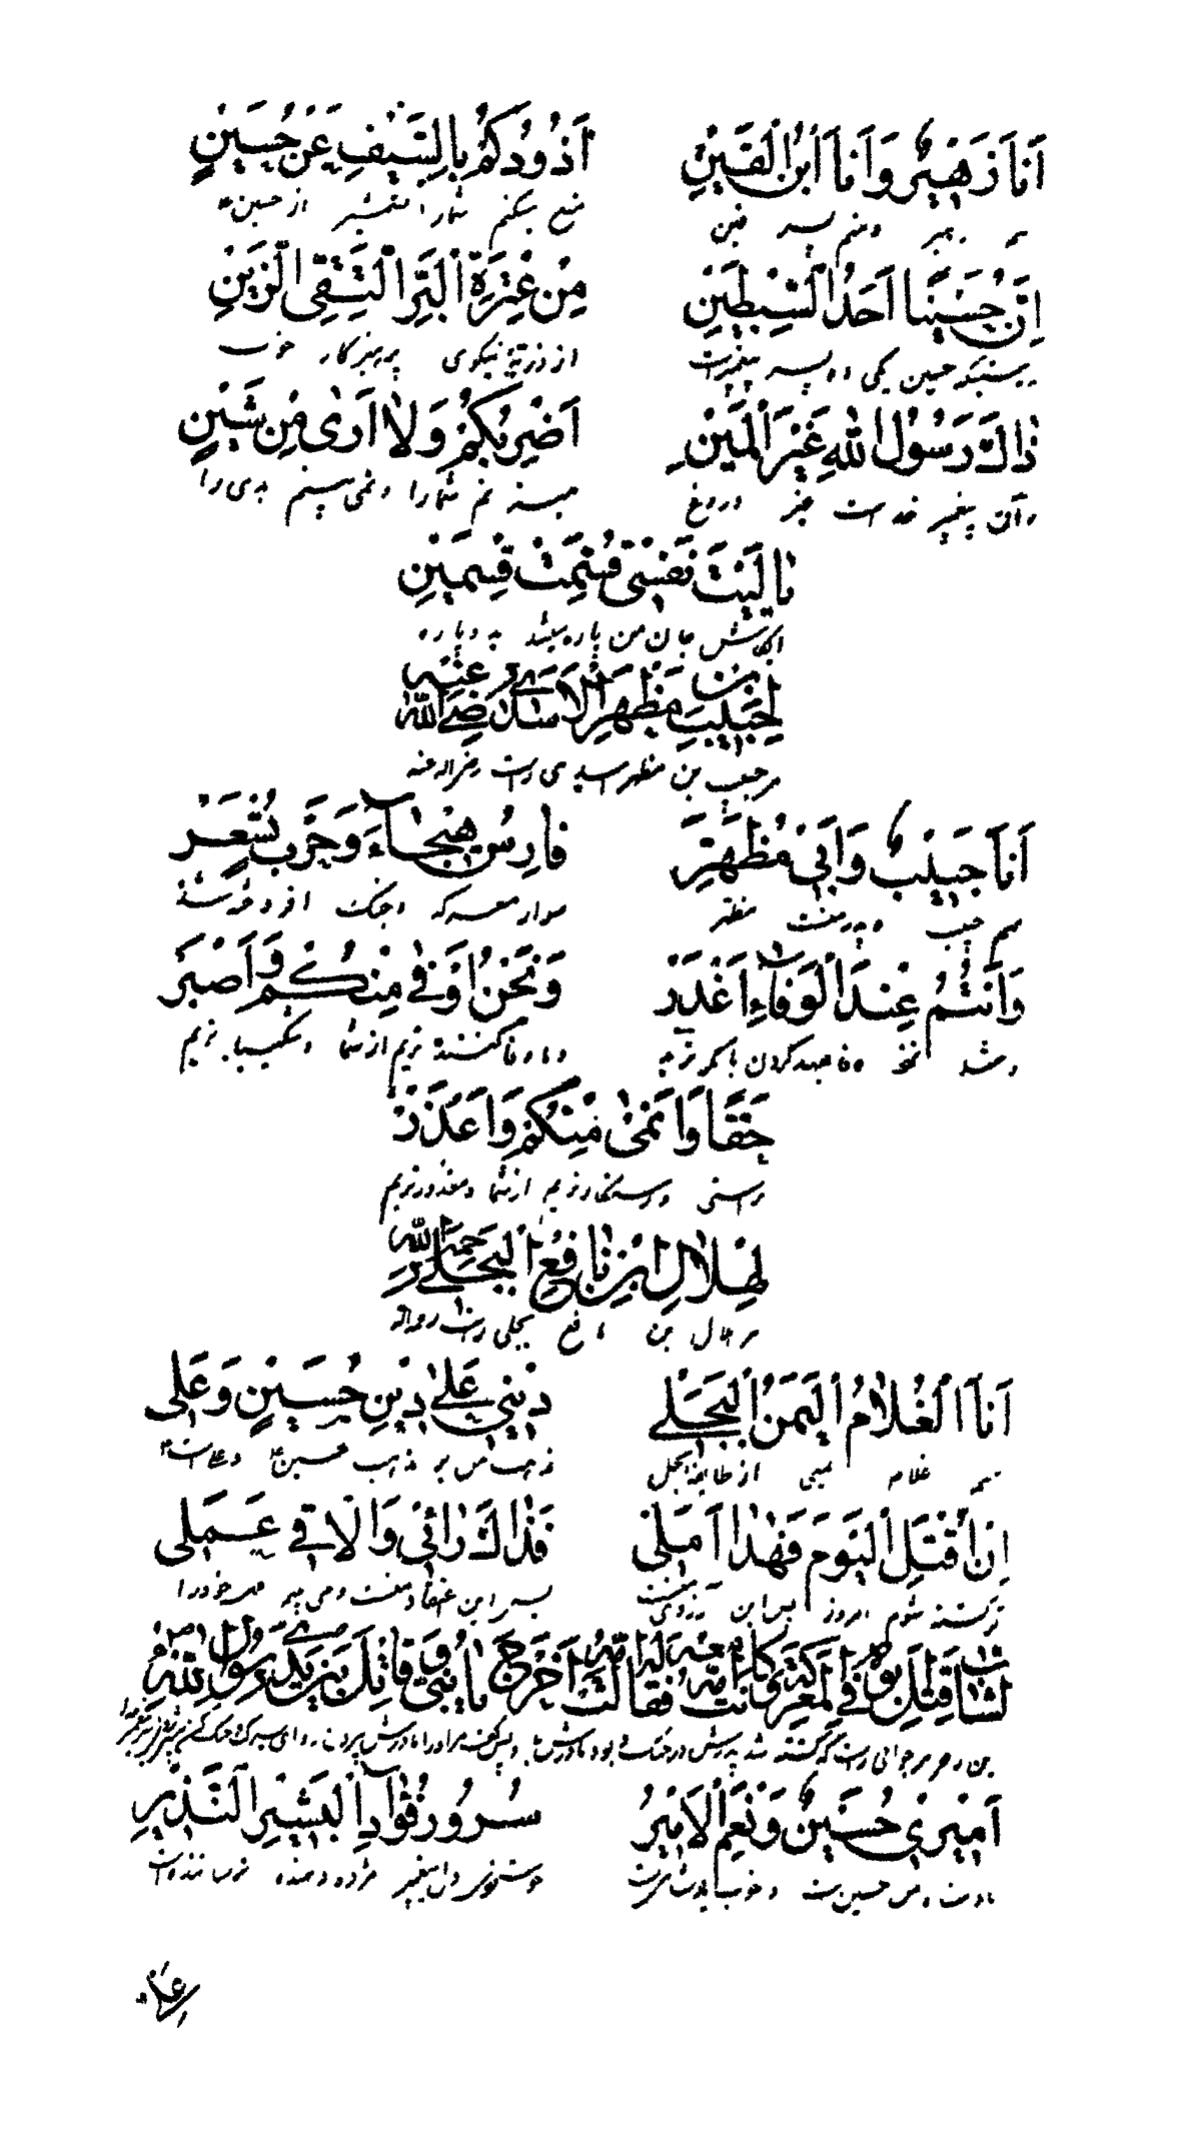 اَنَا زُهَيْرٌ وَاَنَا ابْنُ الْقَيْنِ اَذُودُكُمْ بِالسَّيْفِ عَنْ حُسَيْنٍ
منم زهير ومنم پسر قين منع ميكنم شما را بشمشير از حسين
اِنَّ حُسَيْنًا اَحَدُ السِّبْطَيْنِ مِنْ عِتْرَةِ الْبَرِّ التَّقِيِ الزَّيْنِ
حسين يكى دو پسر پيغمبر است از ذريّه نيكوى پرهيزكار خوب
ذَاكَ رَسُولُ اللهِ غَيْرُ الْمَيْنِ اَضْرِبُكُمْ وَلَا اَرٰى مِنْ شَيْنٍ
وآن پيغمبر خداست غير دروغ ميزنم شما را ونمى بينم بدى را
يَا لَيْتَ نَفْسِي قُسِّمَتْ قِسْمَيْنِ
ايكاش جان من پاره ميشد به دو پاره
لِحَبِيبِ بْنِ مَظْهَرِ الْاَسَدِيِّ رَضِيَ اللهُ عَنْهُ
مر حبيب بن مظهر اسدى راست رضى الله عنه
اَنَا حَبِيْبٌ وَاَبِيْ مُظَهَّرٌ فَارِسُ هَيْجَاءَ وَحَرْبٍ تُسْعَرْ
منم حبيب وپدر منست مظهر سوار معركه وجنگ افروخته شده
وَاَنْتُمُ عِنْدَ الْوَفَاءِ اَغْدَرْ وَنَحْنُ اَوْفٰى مِنْكُمْ وَاَصْبَرْ
وشما نزد وفا عهد كردن با مكر تريد وما وفا كننده تريم از شما وشكيبا تريم
حَقًّا وَاَنْمٰى مِنْكُمْ وَاَعْذَرْ
براستى ورستگارتريم از شما ومعذورتريم
لِهِلَالِ ابْنِ نَافِعٍ الْبَجَلِيِّ رَحِمَهُ اللهُ
مر هلال بن نافع بجلى راست رحمه الله
اَنَا الْغُلَامُ الْيَمَنِيُّ الْبَجَلِي دِيْنِي عَلٰى دِيْنِ حُسَيْنٍ وَعَلِي
منم غلام يمنى از طايفه بجل مذهب من بر مذهب حسين وعلى است
اِنْ اُقْتَلِ الْيَوْمَ فَهٰذَا اَمَلِي فَذَاكَ رَائِي وَاُلَاقِي عَمَلِي
كشته شوم امروز پس اين آرزوى منست پس اين اعتقاد منست ومى بينم عمل خود را
لِشَابٍّ قُتِلَ اَبُوهُ فِي الْمَعْرَكَةِ وَكَانَتْ اُمُّهُ مَعَهُ فَقَالَتْ لَهُ اُمُّهُ اُخْرُجْ يَا بُنَيَّ وَقَاتِلْ بَيْنَ يَدَيْ رَسُولِ اللهِ
اَمِيْرِي حُسَيْنٌ وَنِعْمَ الْاَمِيْرُ سُرُورُ فُؤَادِ الْبَشِيْرِ النَّذِيْرِ
پادشاه من حسين است وخوب پادشاهيست خوشنودى دل پيغمبر مژده دهنده ترساننده است